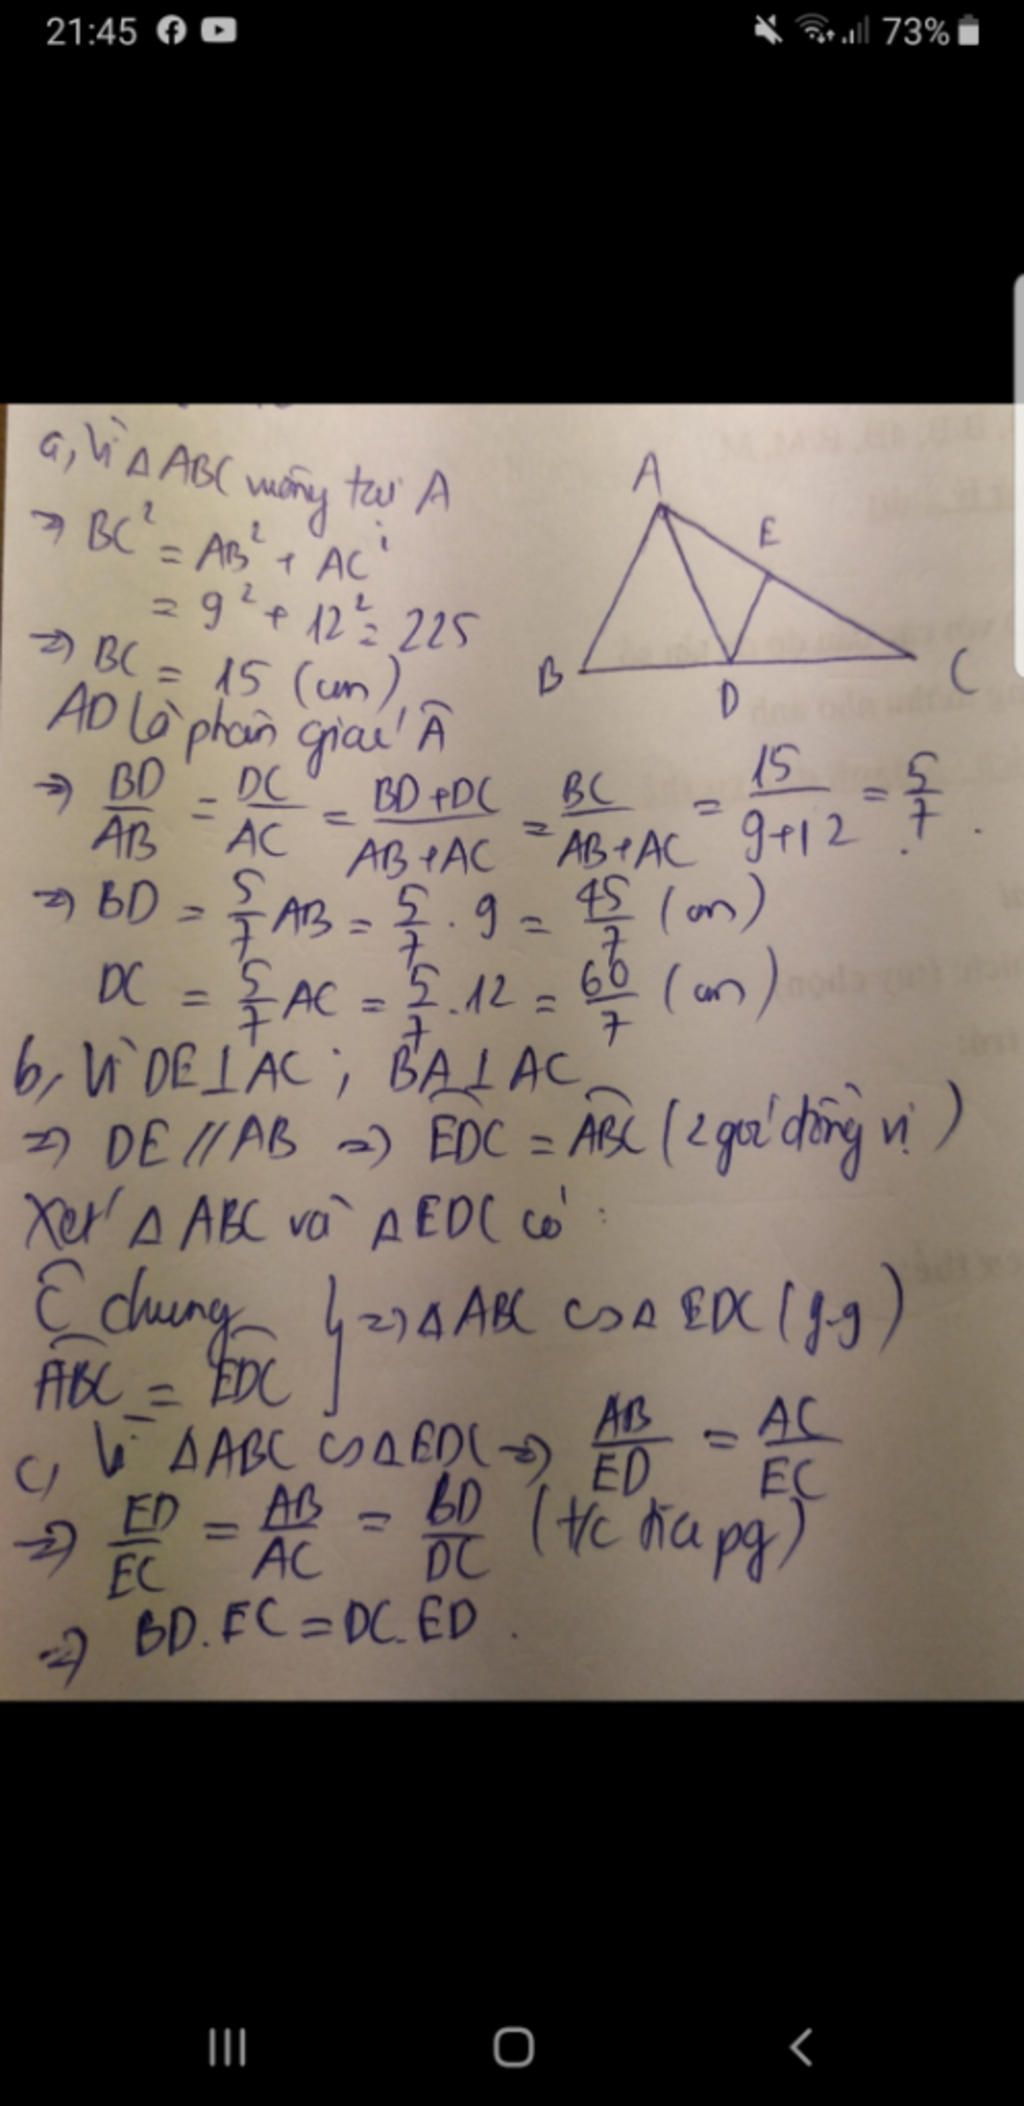 21:45 73%
a, Vì Δ ABC vuông tại A
⇒ BC² = AB² + AC²
= 9² + 12² = 225
⇒ BC = 15 (cm)
AD là phân giác Â
⇒ BD/AB = DC/AC = BD+DC/AB+AC = BC/AB+AC = 15/9+12 = 5/7.
⇒ BD = 5/7 AB = 5/7 . 9 = 45/7 (cm)
DC = 5/7 AC = 5/7 . 12 = 60/7 (cm)
A
E
B
D
C
b, Vì DE ⊥ AC ; BA ⊥ AC
⇒ DE // AB ⇒ EDC = ABC (2 góc đồng vị)
Xét Δ ABC và Δ EDC có :
Ĉ chung
ABC = EDC } ⇒ Δ ABC ∽ Δ EDC (g-g)
c, Vì Δ ABC ∽ Δ EDC ⇒ AB/ED = AC/EC
⇒ ED/EC = AB/AC = BD/DC (t/c tia pg)
⇒ BD . EC = DC . ED .